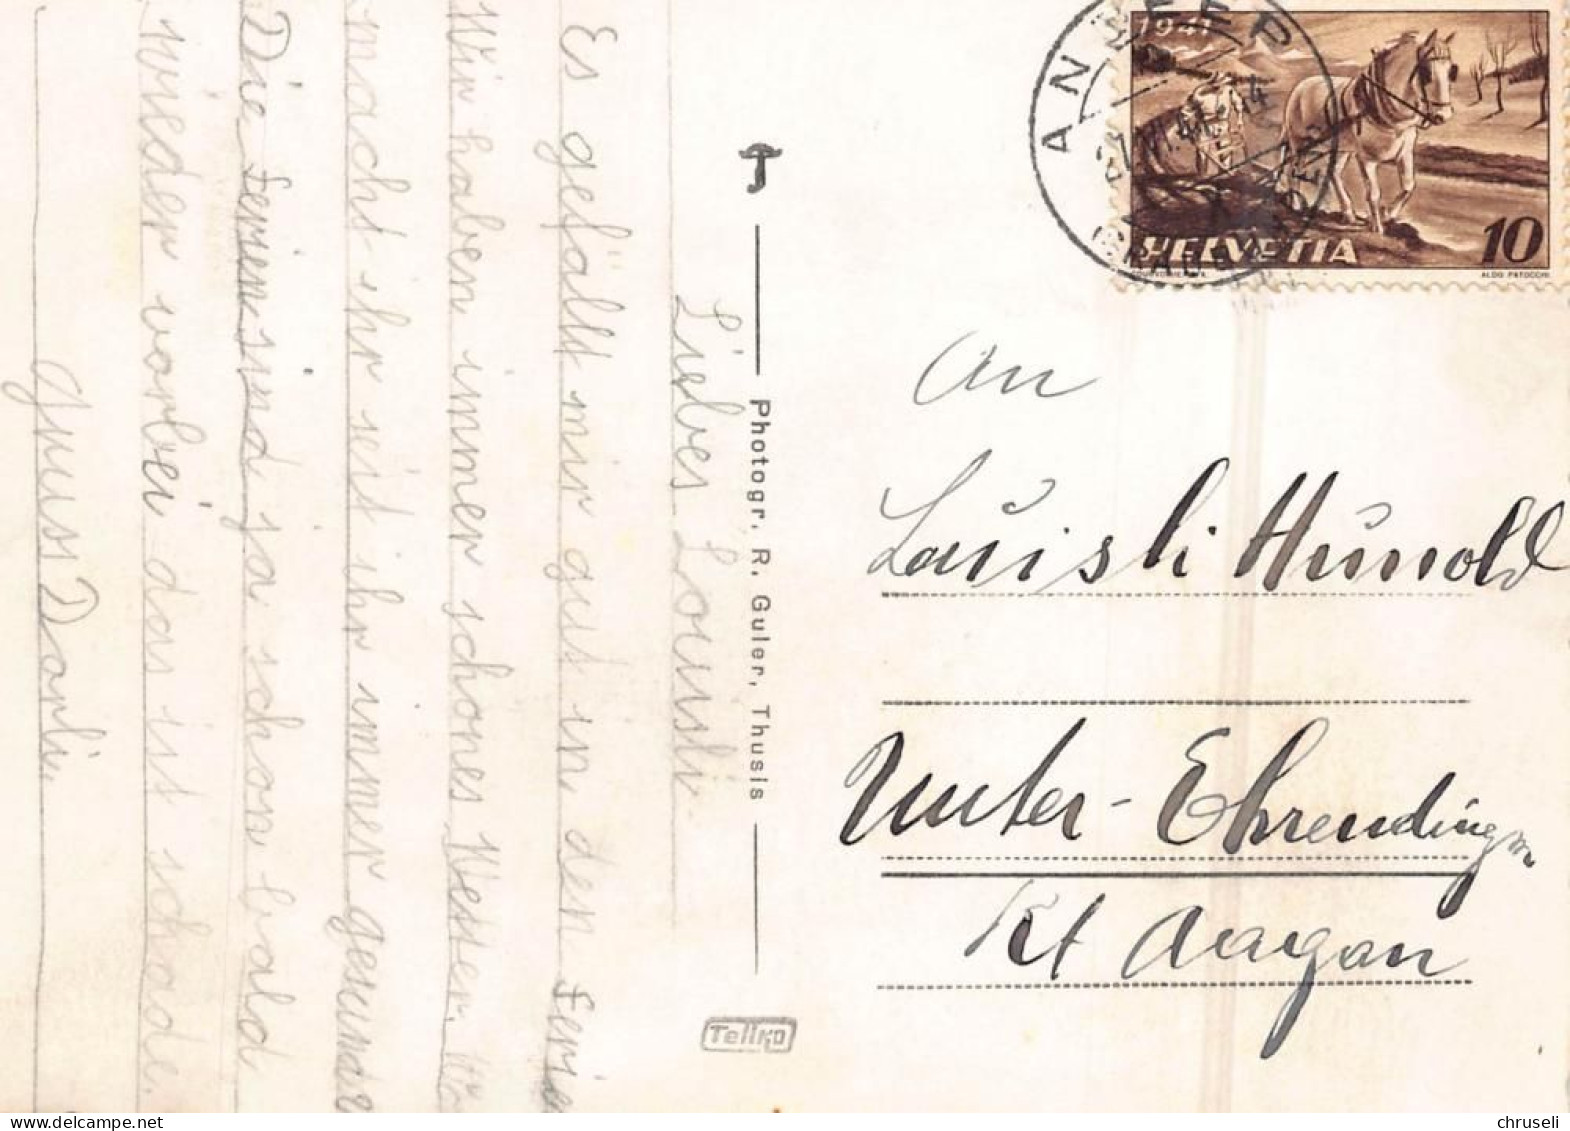 Liebes Lousli.
Es gefällt mir gut in den Ferie
Wir haben immer schones Wetter.
macht ihr seit ihr immer gesund
Die Ferien sind ja schon bald
wieder vorbei das ist schade.
Gruss Dorli.
Photogr. R. Guler, Thusis
Tellko
1941
HELVETIA 10
COURVOISIER S.A.
ALDO PATOCCHI
ANDEER
(GRAUBÜNDEN)
An
Louisli Hunold
Unter-Ehrendingen
Kt Aargau
chruseli